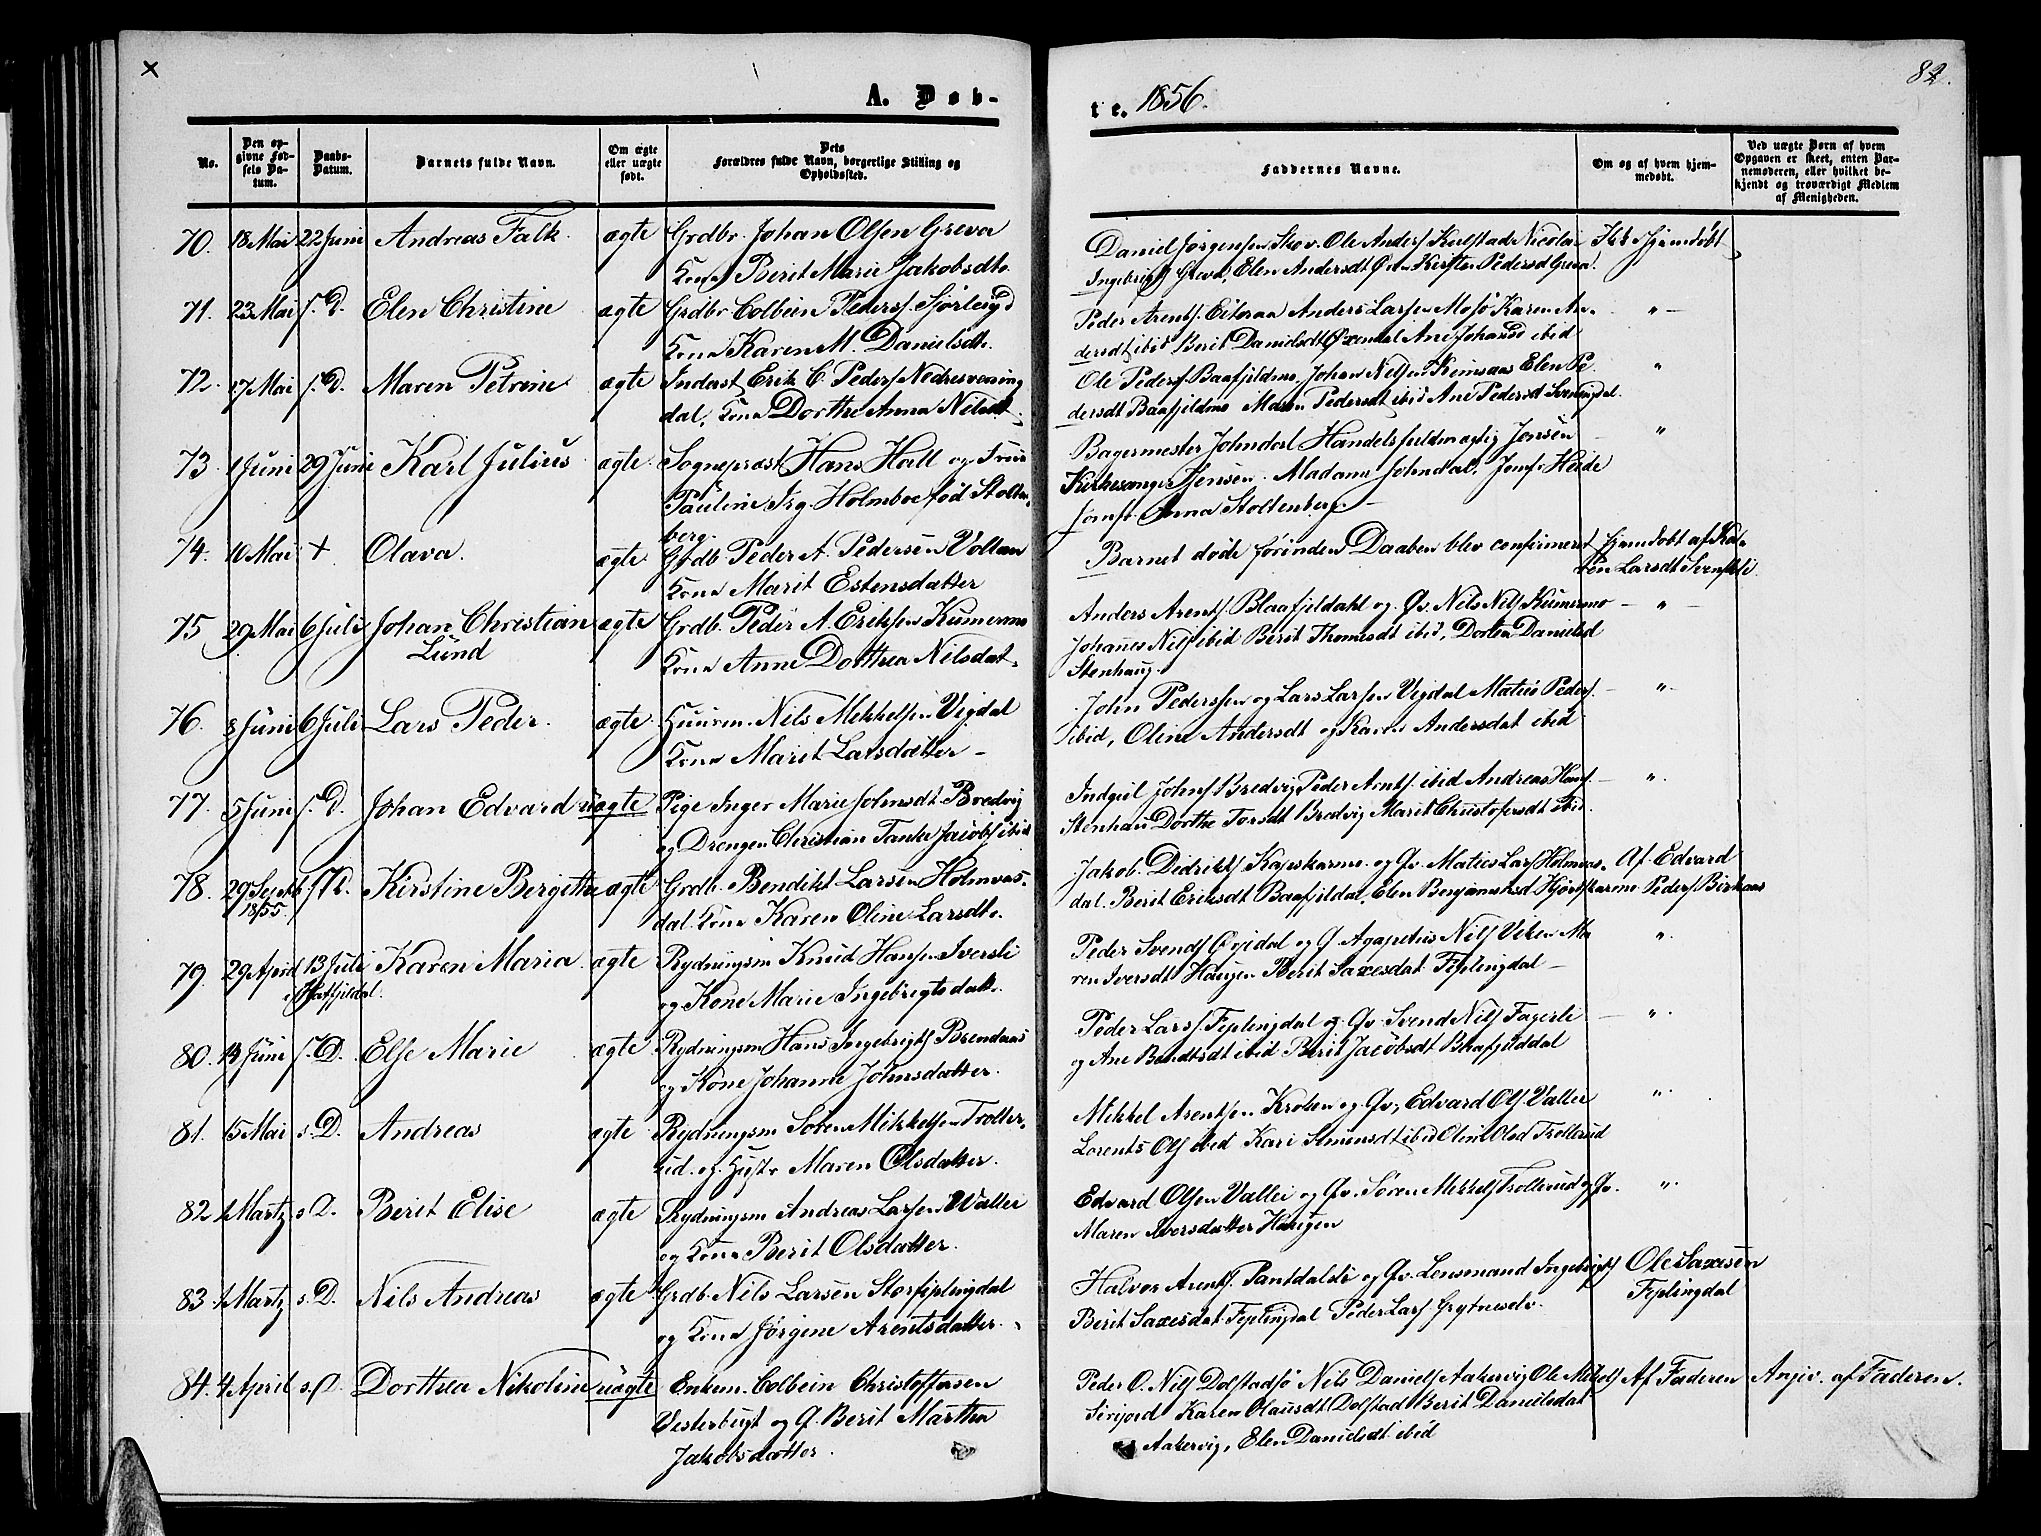 A. Døb-
te. 1856.
82.
No.
Den opgivne Fødsels Datum.
Daabs-Datum.
Barnets fulde Navn.
Om ægte eller uægte født.
Dets Forældres fulde Navn, borgerlige Stilling og Opholdssted.
Faddernes Navne.
Om og af hvem hjemmedøbt.
Ved uægte Børn af hvem Opgaven er skeet, enten Barnemoderen, eller hvilket bekjendt og troværdigt Medlem af Menigheden.
70. 18 Mai 22 Juni Andreas Falk. ægte Grdbr. Johan Olsen Greva
Kone Berit Marie Jakobsdtr.
Daniel Jørgensen Skov. Ole Anders Kulstad Nicolai
Ingebrigts Greva, Elen Andersdt Kirsten Pedersd Greva.
71. 23 Mai s. D. Elen Christine ægte Grdbr Colbein Peders
Kone Karen M. Danielsdtr.
Peder Arents. Anders Larsen Mosø Karen An-
dersdt ibid Berit Danielsdt Øxendal Ane ibid
72. 17 Mai s. D. Maren Petrine ægte Inderst Erik C. Peders Nedresvening
dal, Kone Dorthe Anna Nilsdt.
Ole Peders Baafjeldmo, Johan Nilsen Elen Pe
dersdt Baafjeldmo Maren Pedersdt ibid Ane Pedersdt Svenigdal.
73. 1 Juni 29 Juni Karl Julius ægte. Sognepræst Hans Hall og Frue
Pauline Irg. Holmboe fød Stolten-
berg.
Bagermester Johndal Handelsfuldmægtig Jensen
Kirkesanger Jensen. Madame Johndal, Jomf. Heide
Jomfr. Anna Stoltenberg. -
74. 10 Mai + Olava. ægte Grdb Peder A. Pedersen Vollan
Kone Marit Estensdatter
Barnet døde førinden Daaben blev confirmeret hjemdøbt af Ka-
ren Larsdt Svenskli.
75 29 Mai 6 Juli Johan Christian ægte Grdb. Peder A. Eriksen Kumermo
Lund Kone Anne Dorthea Nilsdat.
Anders Arents. Blaafjeldahl og Qv. Nils Nils Kumermo - " -
Johannes Nils ibid Berit Thomesdt ibid, Dortea Danielsd
Stenhaug.
76. 8 Juni 6 Juli Lars Peder. ægte. Nils Mikkelsen Vigdal
Kone Marit Larsdatter -
John Pedersen og Lars Larsen Vigdal Matis Peders. - ".
ibid, Oline Andersdt og Karen Andersdat ibid
77. 5 Juni s. D. Johan Edvard uægte. Pige Inger Marie Johnsdt Bredvig
og Drengen Christian Tanke Jacobs ibid
Indgiel Johns Bredvig Peder Arnts. ibid Andreas Hans. - ".
Stenhau Dorthe Torsdt Bredvig Marit Christofersdt ibid.
78. 29 Septb s. D. Kirstine Bergitte ægte Grdb. Bendikt Larsen Holmvas-
1855. dal. Kone Karen Oline Larsdtr.
Jakob. Didriks Kapskarmo og Qv. Matis Lars Holmvas- Af Edvard
dal. Berit Eriksdt Baafjeldal, Elen Benjaminsd Hjortskarmo Peders
79. 29 April 13 Juli Karen Maria. ægte Rydningsm Knud Hansen Iversli
i Hatfjeldal. og Kone Marie Ingebrigtsdatr.
Peder Svends og Q. Agapetus Nils Viken Ma ".
ren Iversdt Haugen Berit Saxesdat Fiplingdal -
80. 14 Juni s. D. Else Marie ægte Rydningsm Hans Ingebrigts Brendaas
og Kone Johanne Johnsdatter.
Peder Lars. Fiplingdal og Qv. Svend Nils Fagerli - ".
og Ane Bendtsdt ibid Berit Jacobsdt Baafjelddal
81. 15 Mai s. D. Andreas ægte Rydningsm Søren Mikkelsen Troller-
ud. og Hustr Maren Olsdatter.
Mikkel Arentsen Kroken og Qv, Edvard Ols Vallei ".
Lorents Ols ibid Kari Simonsdt ibid Oline Olsd Trollerud
82 1 Martz s. D. Berit Elise ægte Rydningsm Andreas Larsen Vallei
og Kone Berit Olsdatter.
Edvard Olsen Vallei og Qv. Søren Mikkels Trollerud og Qv. ".
Maren Iversdatter Haugen
83 1 Martz s. D. Nils Andreas ægte Grdb. Nils Larsen Storfiplingdal
og Kone Jørgene Arentsdatter.
Halvor Arents. Pantdalsli og Qv. Lensmand Ingebrigts Ole Saxesen
Berit Saxesdat Fiplingdal Peder Lars Grytneselv. Fiplingdal
84. 4 April s. D. Dorthea Nikoline uægte Enkem. Colbein Christoffersen
Vesterbugt og Q. Berit Martha
Jakobsdatter.
Peder O. Nils Dolstadsø Nils Daniels Aakervig Ole Mikels Af Faderen Angiv. af Faderen.
Karen Olausdt Dolstad Berit Danielsdat
Aakervig, Elen Danielsdt ibid